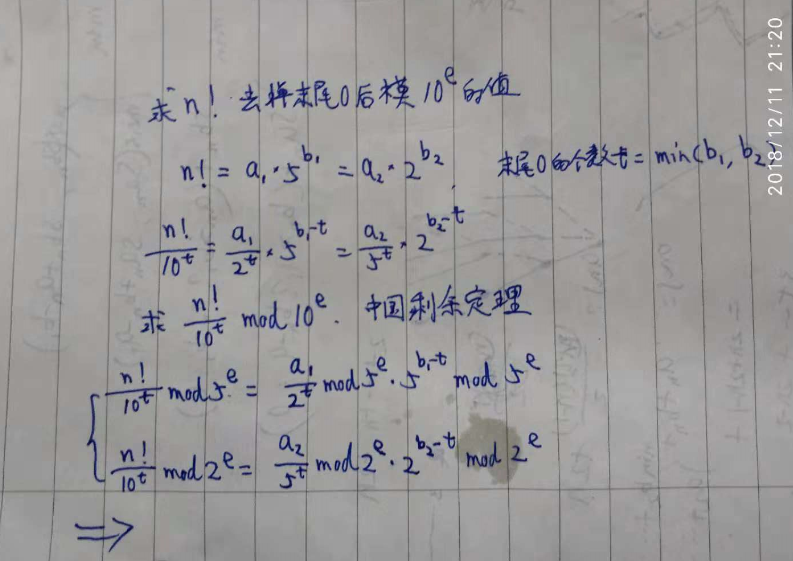 求 n! 去掉末尾0后模 10^e 的值
n! = a₁·5^b₁ = a₂·2^b₂, 末尾0的个数t = min(b₁, b₂)
n!/10^t = a₁/2^t · 5^(b₁-t) = a₂/5^t · 2^(b₂-t)
求 n!/10^t mod 10^e. 中国剩余定理
n!/10^t mod 5^e = a₁/2^t mod 5^e · 5^(b₁-t) mod 5^e
n!/10^t mod 2^e = a₂/5^t mod 2^e · 2^(b₂-t) mod 2^e
⇒
2018/12/11 21:20